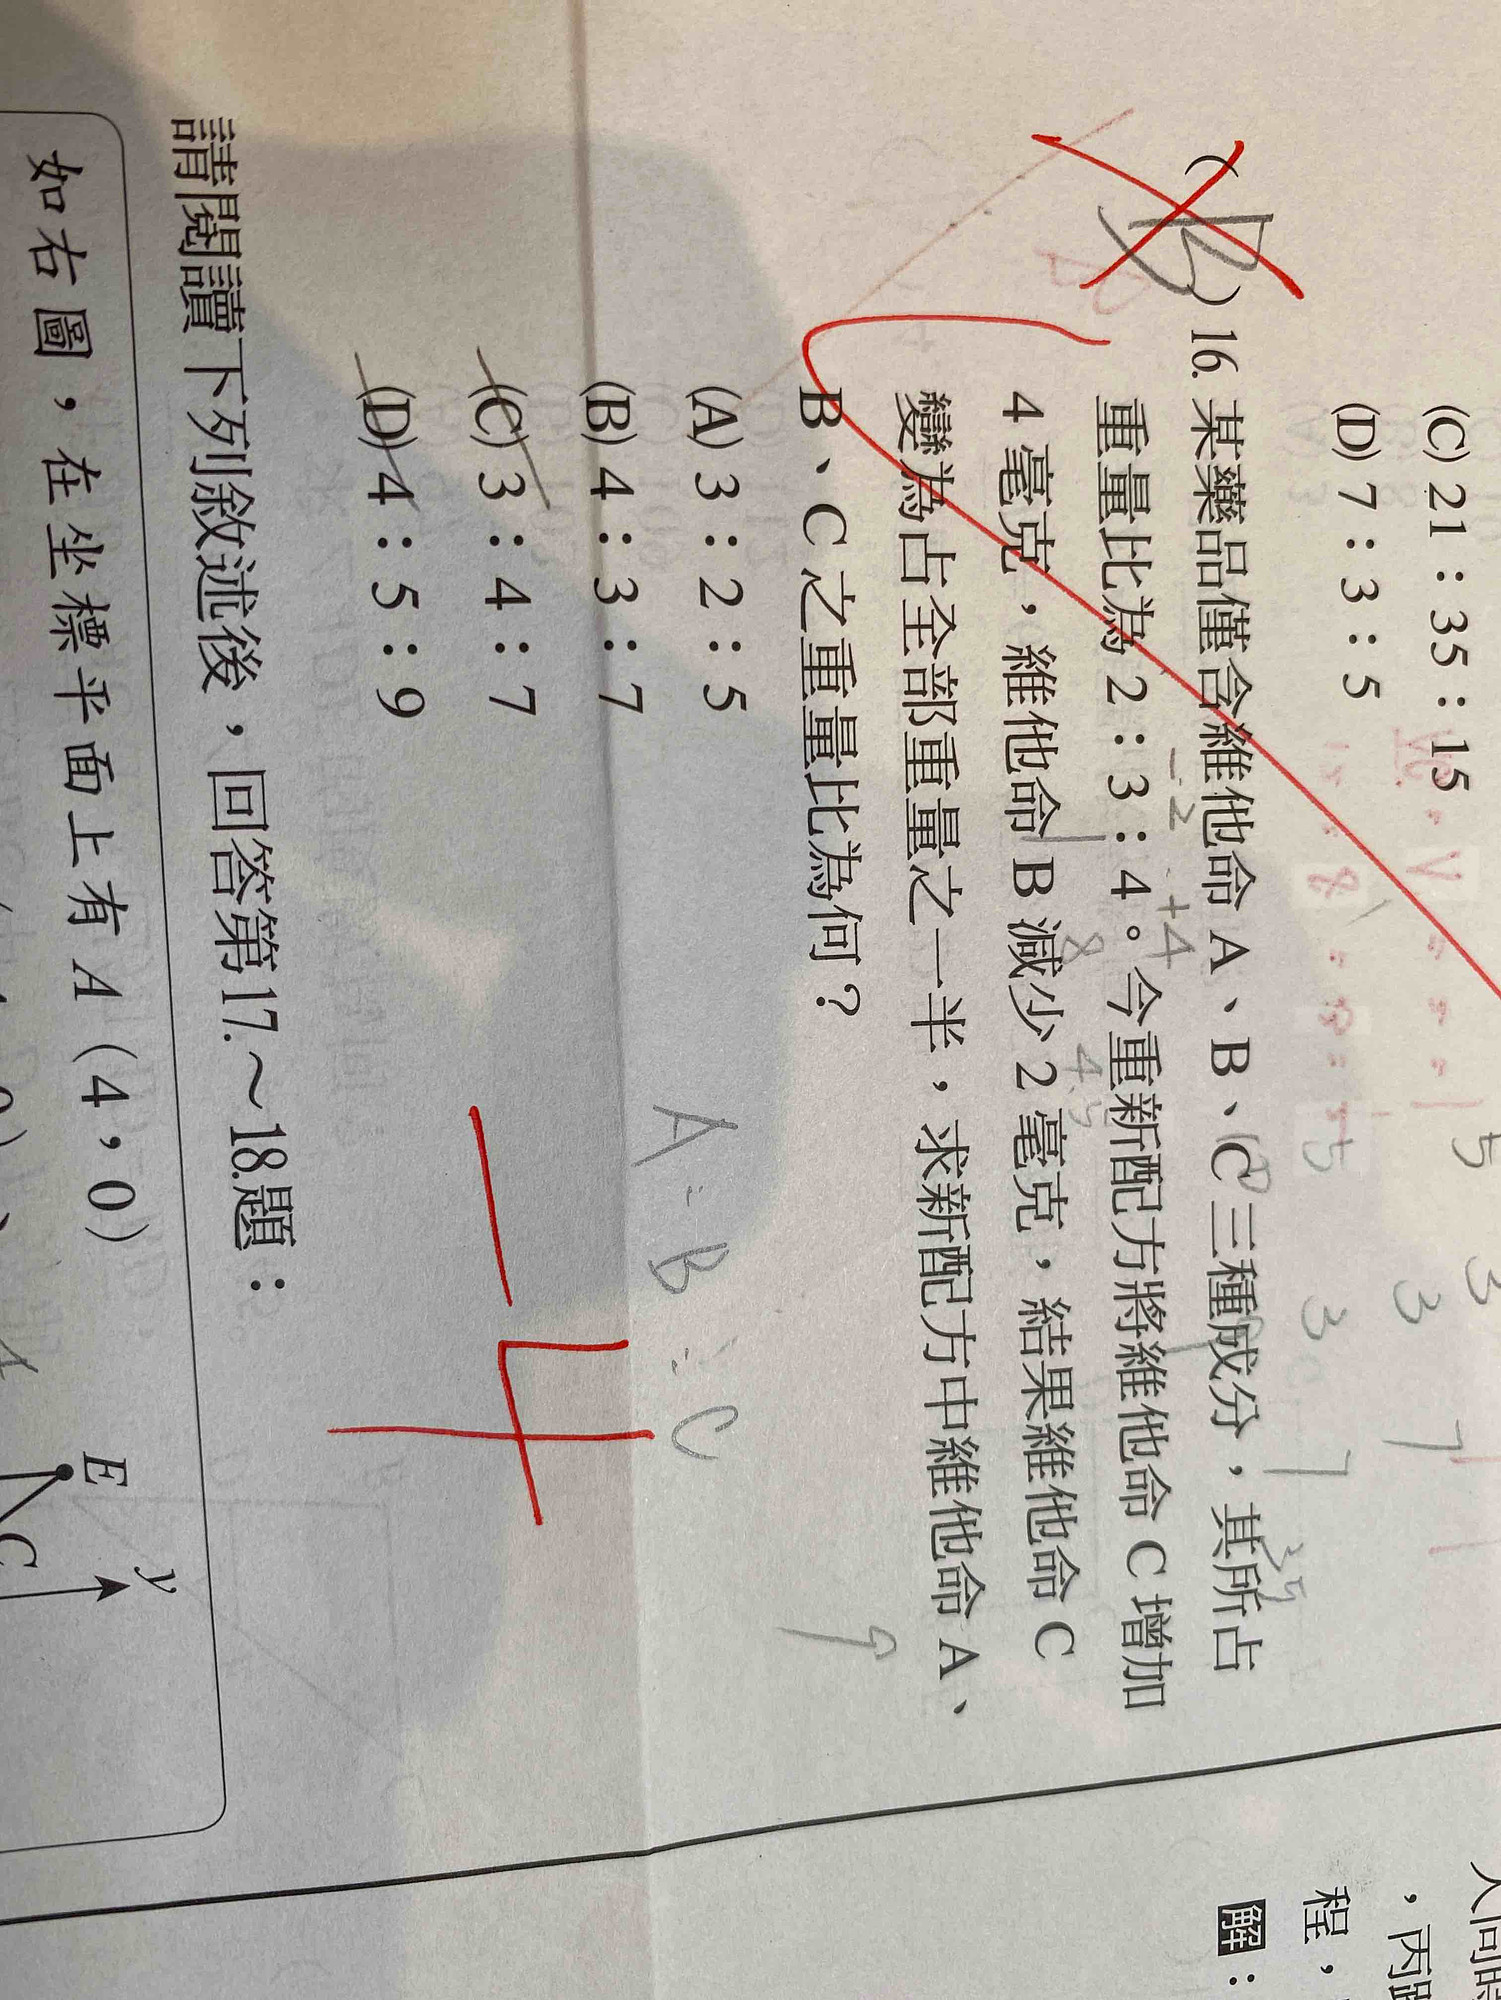 (C) 21：35：15
(D) 7：3：5
( B ) 16. 某藥品僅含維他命 A、B、C 三種成分，其所占
重量比為 2：3：4。今重新配方將維他命 C 增加
4 毫克，維他命 B 減少 2 毫克，結果維他命 C
變為占全部重量之一半，求新配方中維他命 A、
B、C 之重量比為何？
(A) 3：2：5
(B) 4：3：7
(C) 3：4：7
(D) 4：5：9
-2
+4
8
4.5
5 3
3 7
5 3 7
A:B:C
請閱讀下列敘述後，回答第17.～18.題：
如右圖，在坐標平面上有 A (4，0)
E
y
C
，丙跑
程，
解：